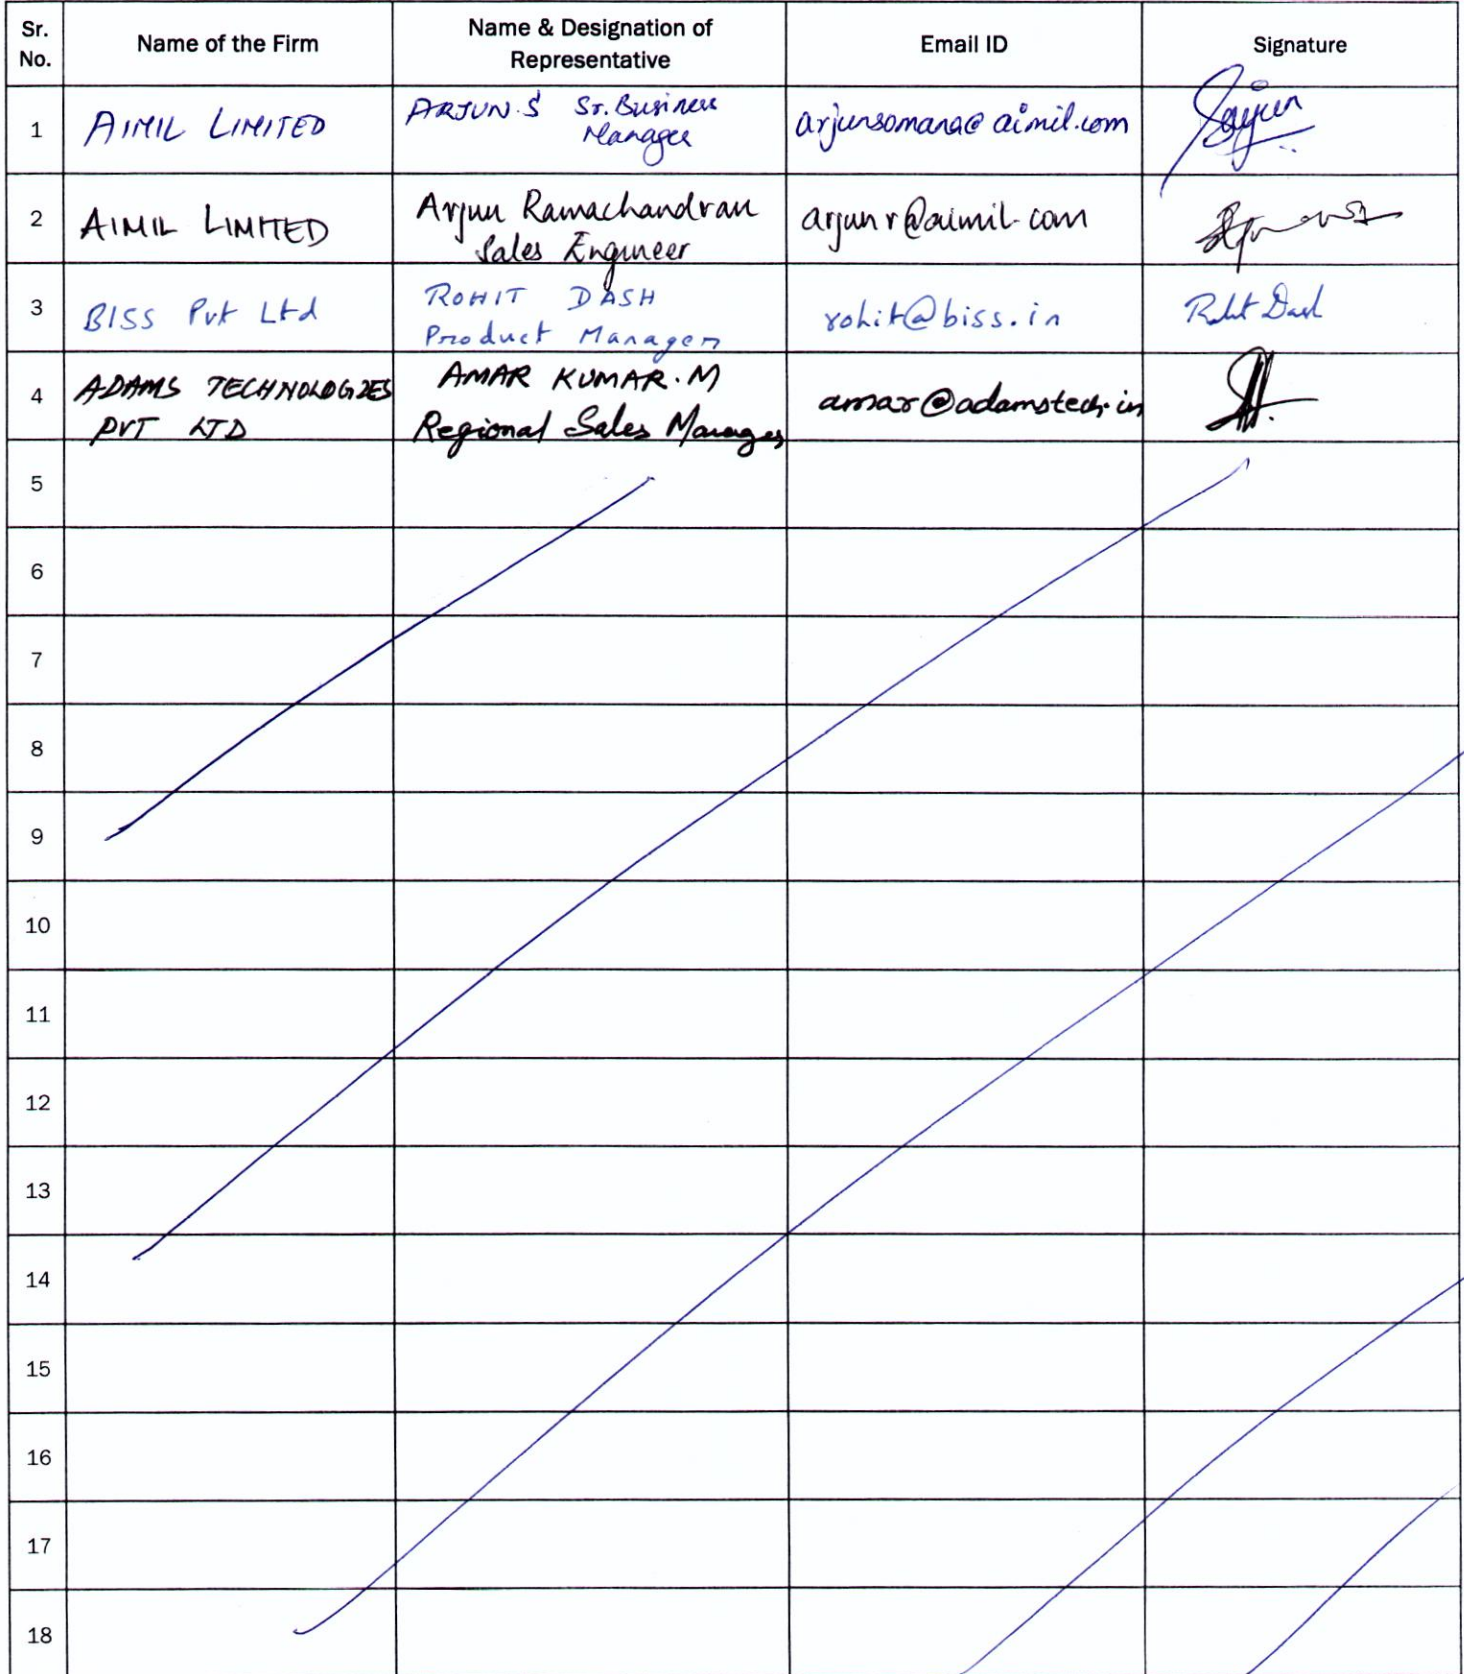 Sr. No. Name of the Firm Name & Designation of Representative Email ID Signature
1 AIMIL LIMITED ARJUN.S Sr. Business Manager arjunsomana@aimil.com
2 AIMIL LIMITED Arjun Ramachandran Sales Engineer arjunr@aimil.com
3 BISS Pvt Ltd ROHIT DASH Product Manager rohit@biss.in Rohit Dash
4 ADAMS TECHNOLOGIES PVT LTD AMAR KUMAR.M Regional Sales Manager amar@adamstech.in
5
6
7
8
9
10
11
12
13
14
15
16
17
18